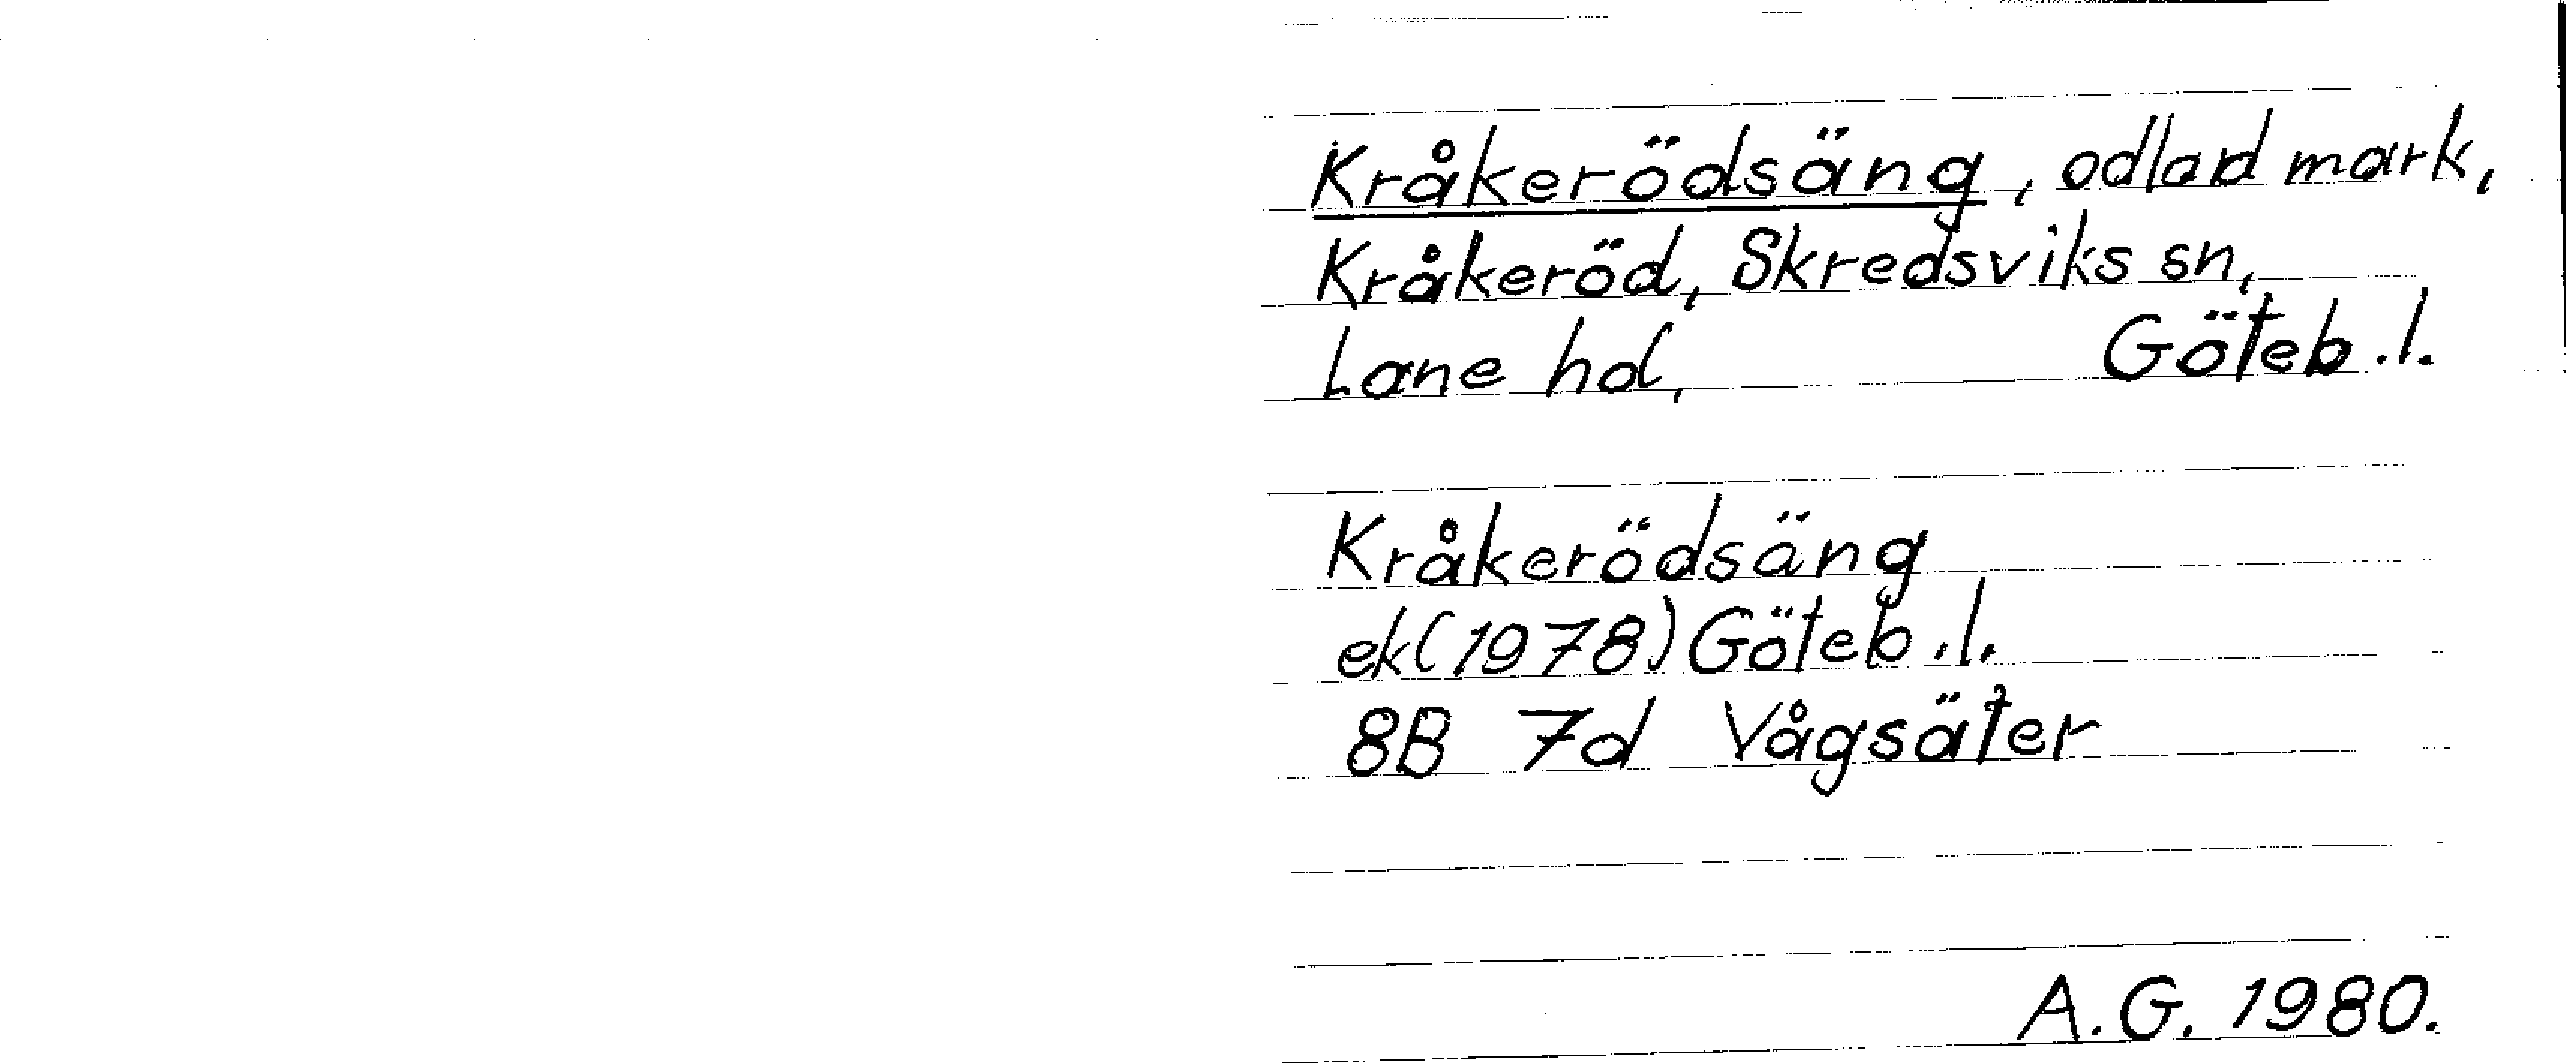 Kråkerödsäng, odlad mark,
Kråkeröd, Skredsviks sn,
Lane hd, Göteb.l.
Kråkerödsäng
ek(1978) Göteb.l.
8B 7d Vågsäter
A.G. 1980.